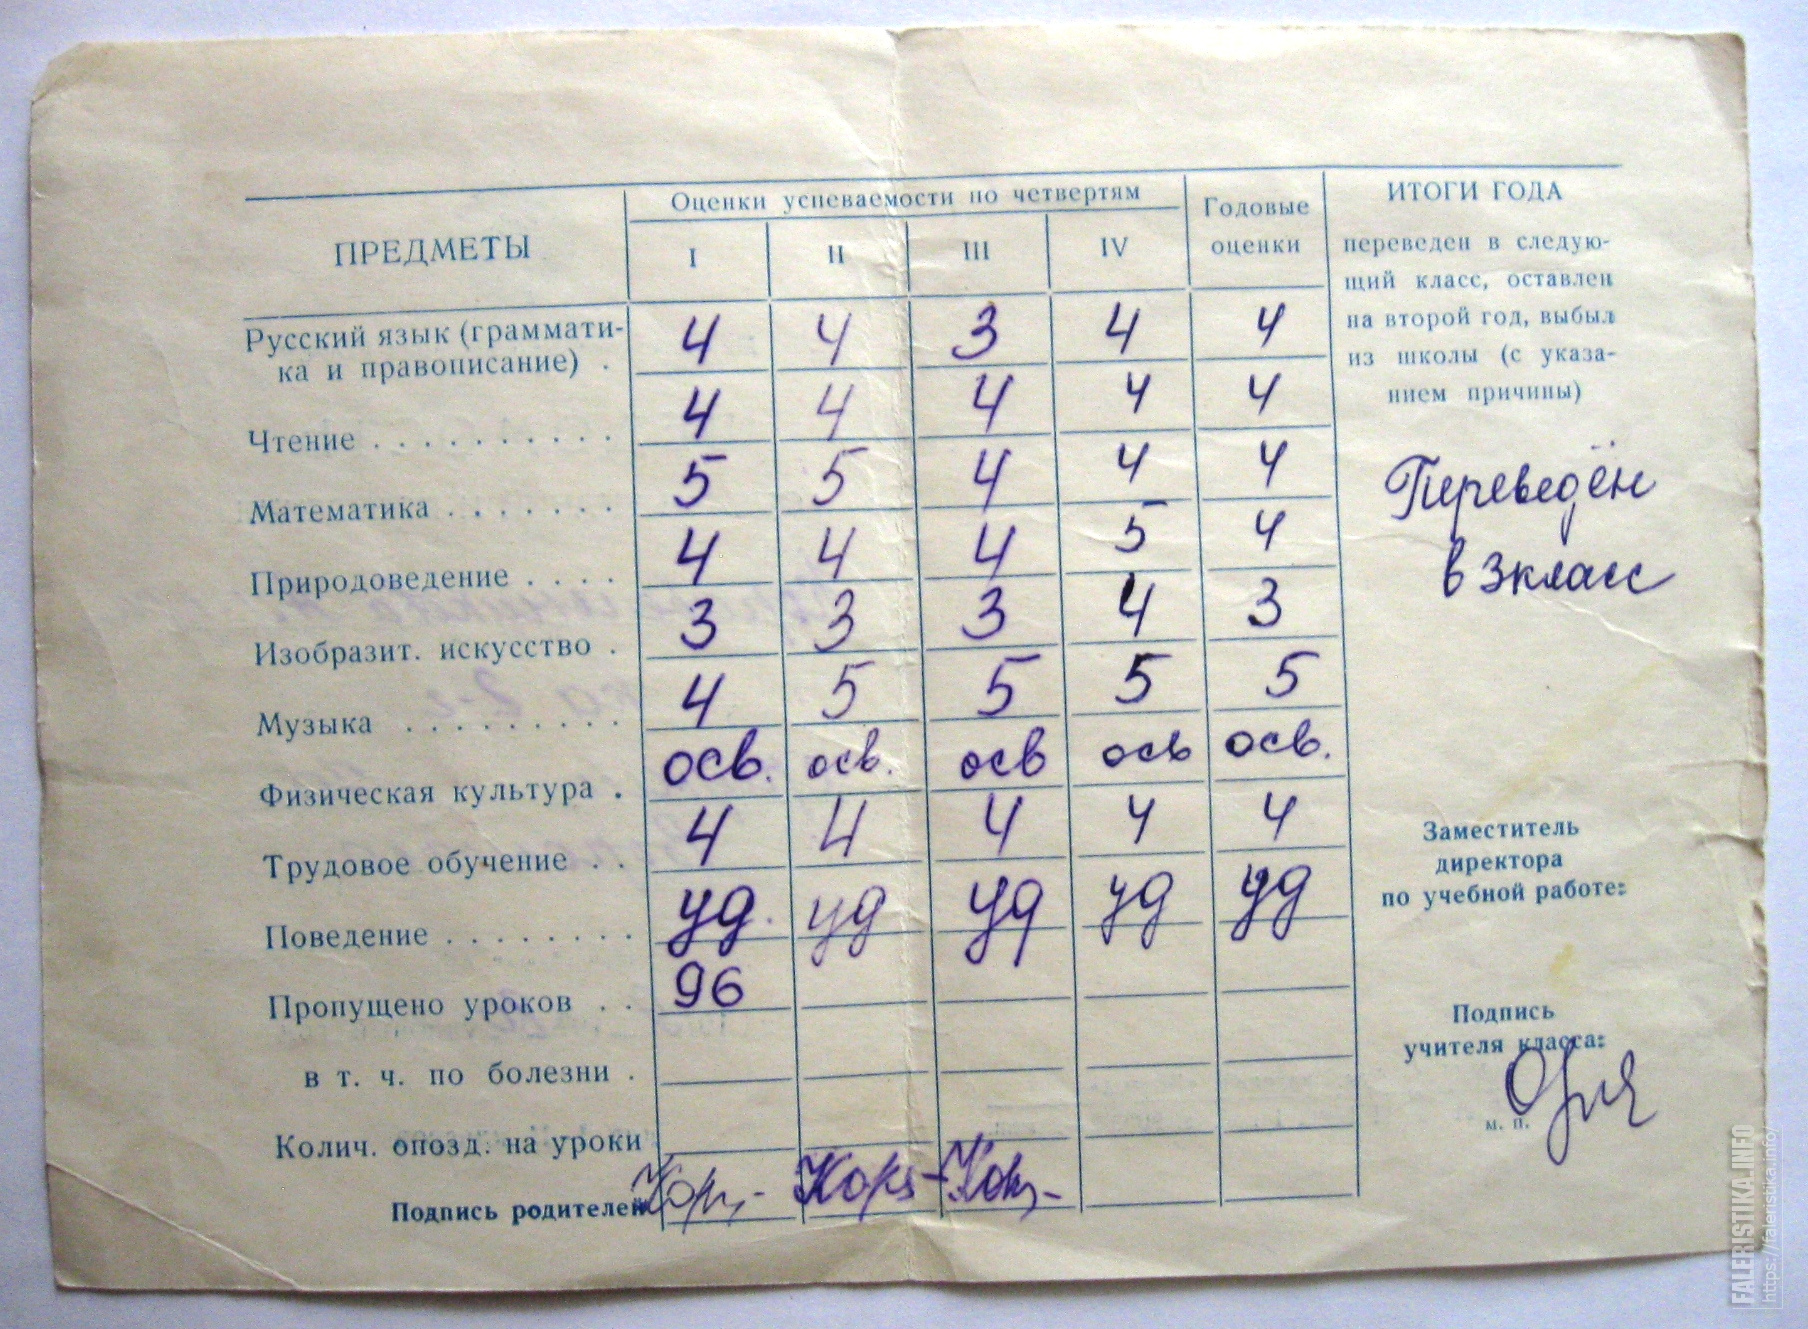 Оценки успеваемости по четвертям
ПРЕДМЕТЫ I II III IV Годовые оценки
Русский язык (граммати-
ка и правописание) . 4 4 3 4 4
Чтение . . . . . . . . . . 4 4 4 4 4
Математика . . . . . . . 5 5 4 4 4
Природоведение . . . . 4 4 4 5 4
Изобразит. искусство . 3 3 3 4 3
Музыка . . . . . . . . . 4 5 5 5 5
Физическая культура . осв. осв. осв осв осв.
Трудовое обучение . . 4 4 4 4 4
Поведение . . . . . . . . уд. уд уд уд уд
Пропущено уроков . . 96
в т. ч. по болезни .
Колич. опозд. на уроки
Подпись родителей
ИТОГИ ГОДА
переведен в следую-
щий класс, оставлен
на второй год, выбыл
из школы (с указа-
нием причины)
Переведён
в 3 класс
Заместитель
директора
по учебной работе:
Подпись
учителя класса:
м. п.
FALERISTIKA.INFO
https://faleristika.info/